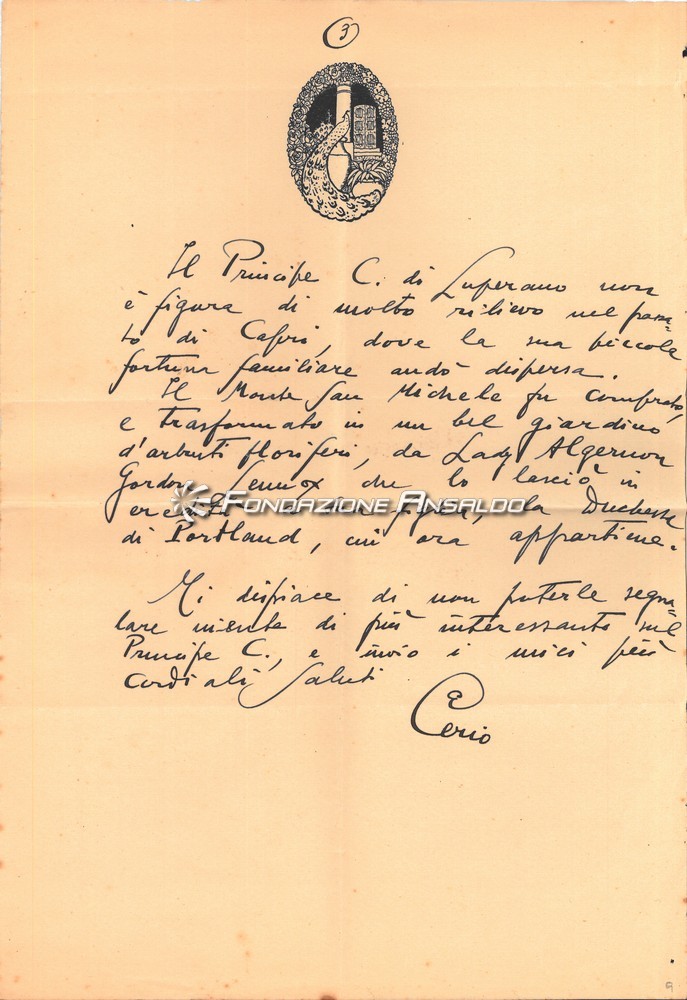 3
Il Principe C. di Luperano non
è figura di molto rilievo nel passa=
to di Capri, dove la sua piccola
fortuna familiare andò dispersa.
Il Monte San Michele fu comprato,
e trasformato in un bel giardino
d'arbusti floriferi, da Lady Algernon
Gordon Lennox che lo lasciò in
FONDAZIONE ANSALDO
eredità sua figlia, la Duchessa
di Portland, cui ora appartiene.
Mi dispiace di non poterle segna=
lare niente di più interessante sul
Principe C., e invio i miei più
cordiali saluti
Cerio
9